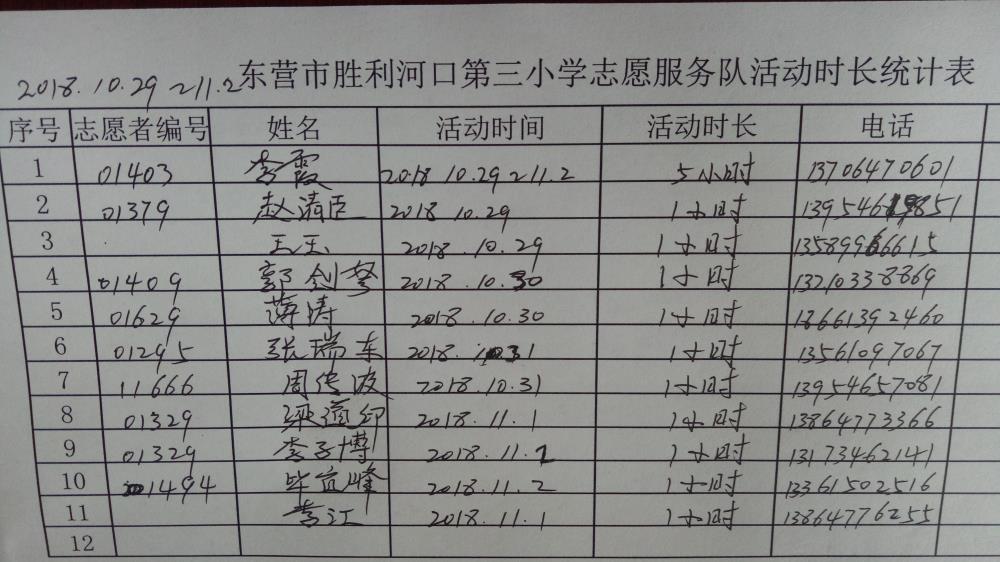 2018.10.29~11.2 东营市胜利河口第三小学志愿服务队活动时长统计表
序号 志愿者编号 姓名 活动时间 活动时长 电话
1 01403 李霞 2018 10.29~11.2 5小时 13706470601
2 01379 赵清臣 2018 10.29 1小时
3 王玉 2018.10.29 1小时 13589966615
4 01409 郭剑 2018.10.30 1小时 13210338869
5 01629 薄涛 2018.10.30 1小时 18661392460
6 01295 张瑞东 2018.10.31 1小时 13561097067
7 11666 周传波 2018.10.31 1小时 13954657081
8 01329 2018.11.1 1小时 13864773366
9 01329 李子博 2018.11.2 1小时 13173462141
10 01494 毕宜峰 2018.11.2 1小时 13361502516
11 江 2018.11.1 1小时 13864776255
12